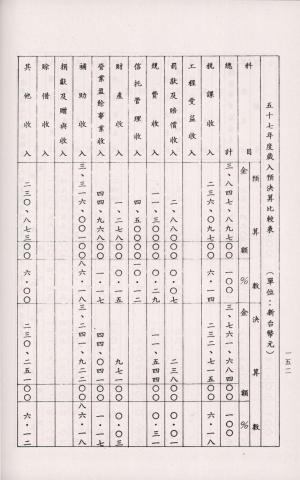 五十七年度歲入預決算比較表　（單位：新台幣元）
科目　預算數　金額　%　決算數　金額　%
總計　三、八四七、八九七〇〇　一〇〇　三、七六一、六八四〇〇　一〇〇
稅課收入　二三六、〇九七〇〇　六・一四　二三二、七一五〇〇　六・一八
工程受益收入
罰款及賠償收入　二、八八〇〇〇　〇・〇七　二三八〇〇　〇・〇一
規費收入　一一、三〇〇〇〇　〇・二九　一一、五四四〇〇　〇・三一
信托管理收入　四、五〇〇〇〇　〇・一二
財產收入　一、二七八〇〇　〇・一五　九七一〇〇　〇・〇三
營業盈餘事業收入　四四、九六八〇〇　一・一七　四四、〇四三〇〇　一・一七
補助收入　三、三一六、〇〇一〇〇　八六・一八　三、二四一、九二二〇〇　八六・一八
捐獻及贈與收入
賒借收入
其他收入　二三〇、八七三〇〇　六・〇〇　二三〇、二五一〇〇　六・一二
一五二